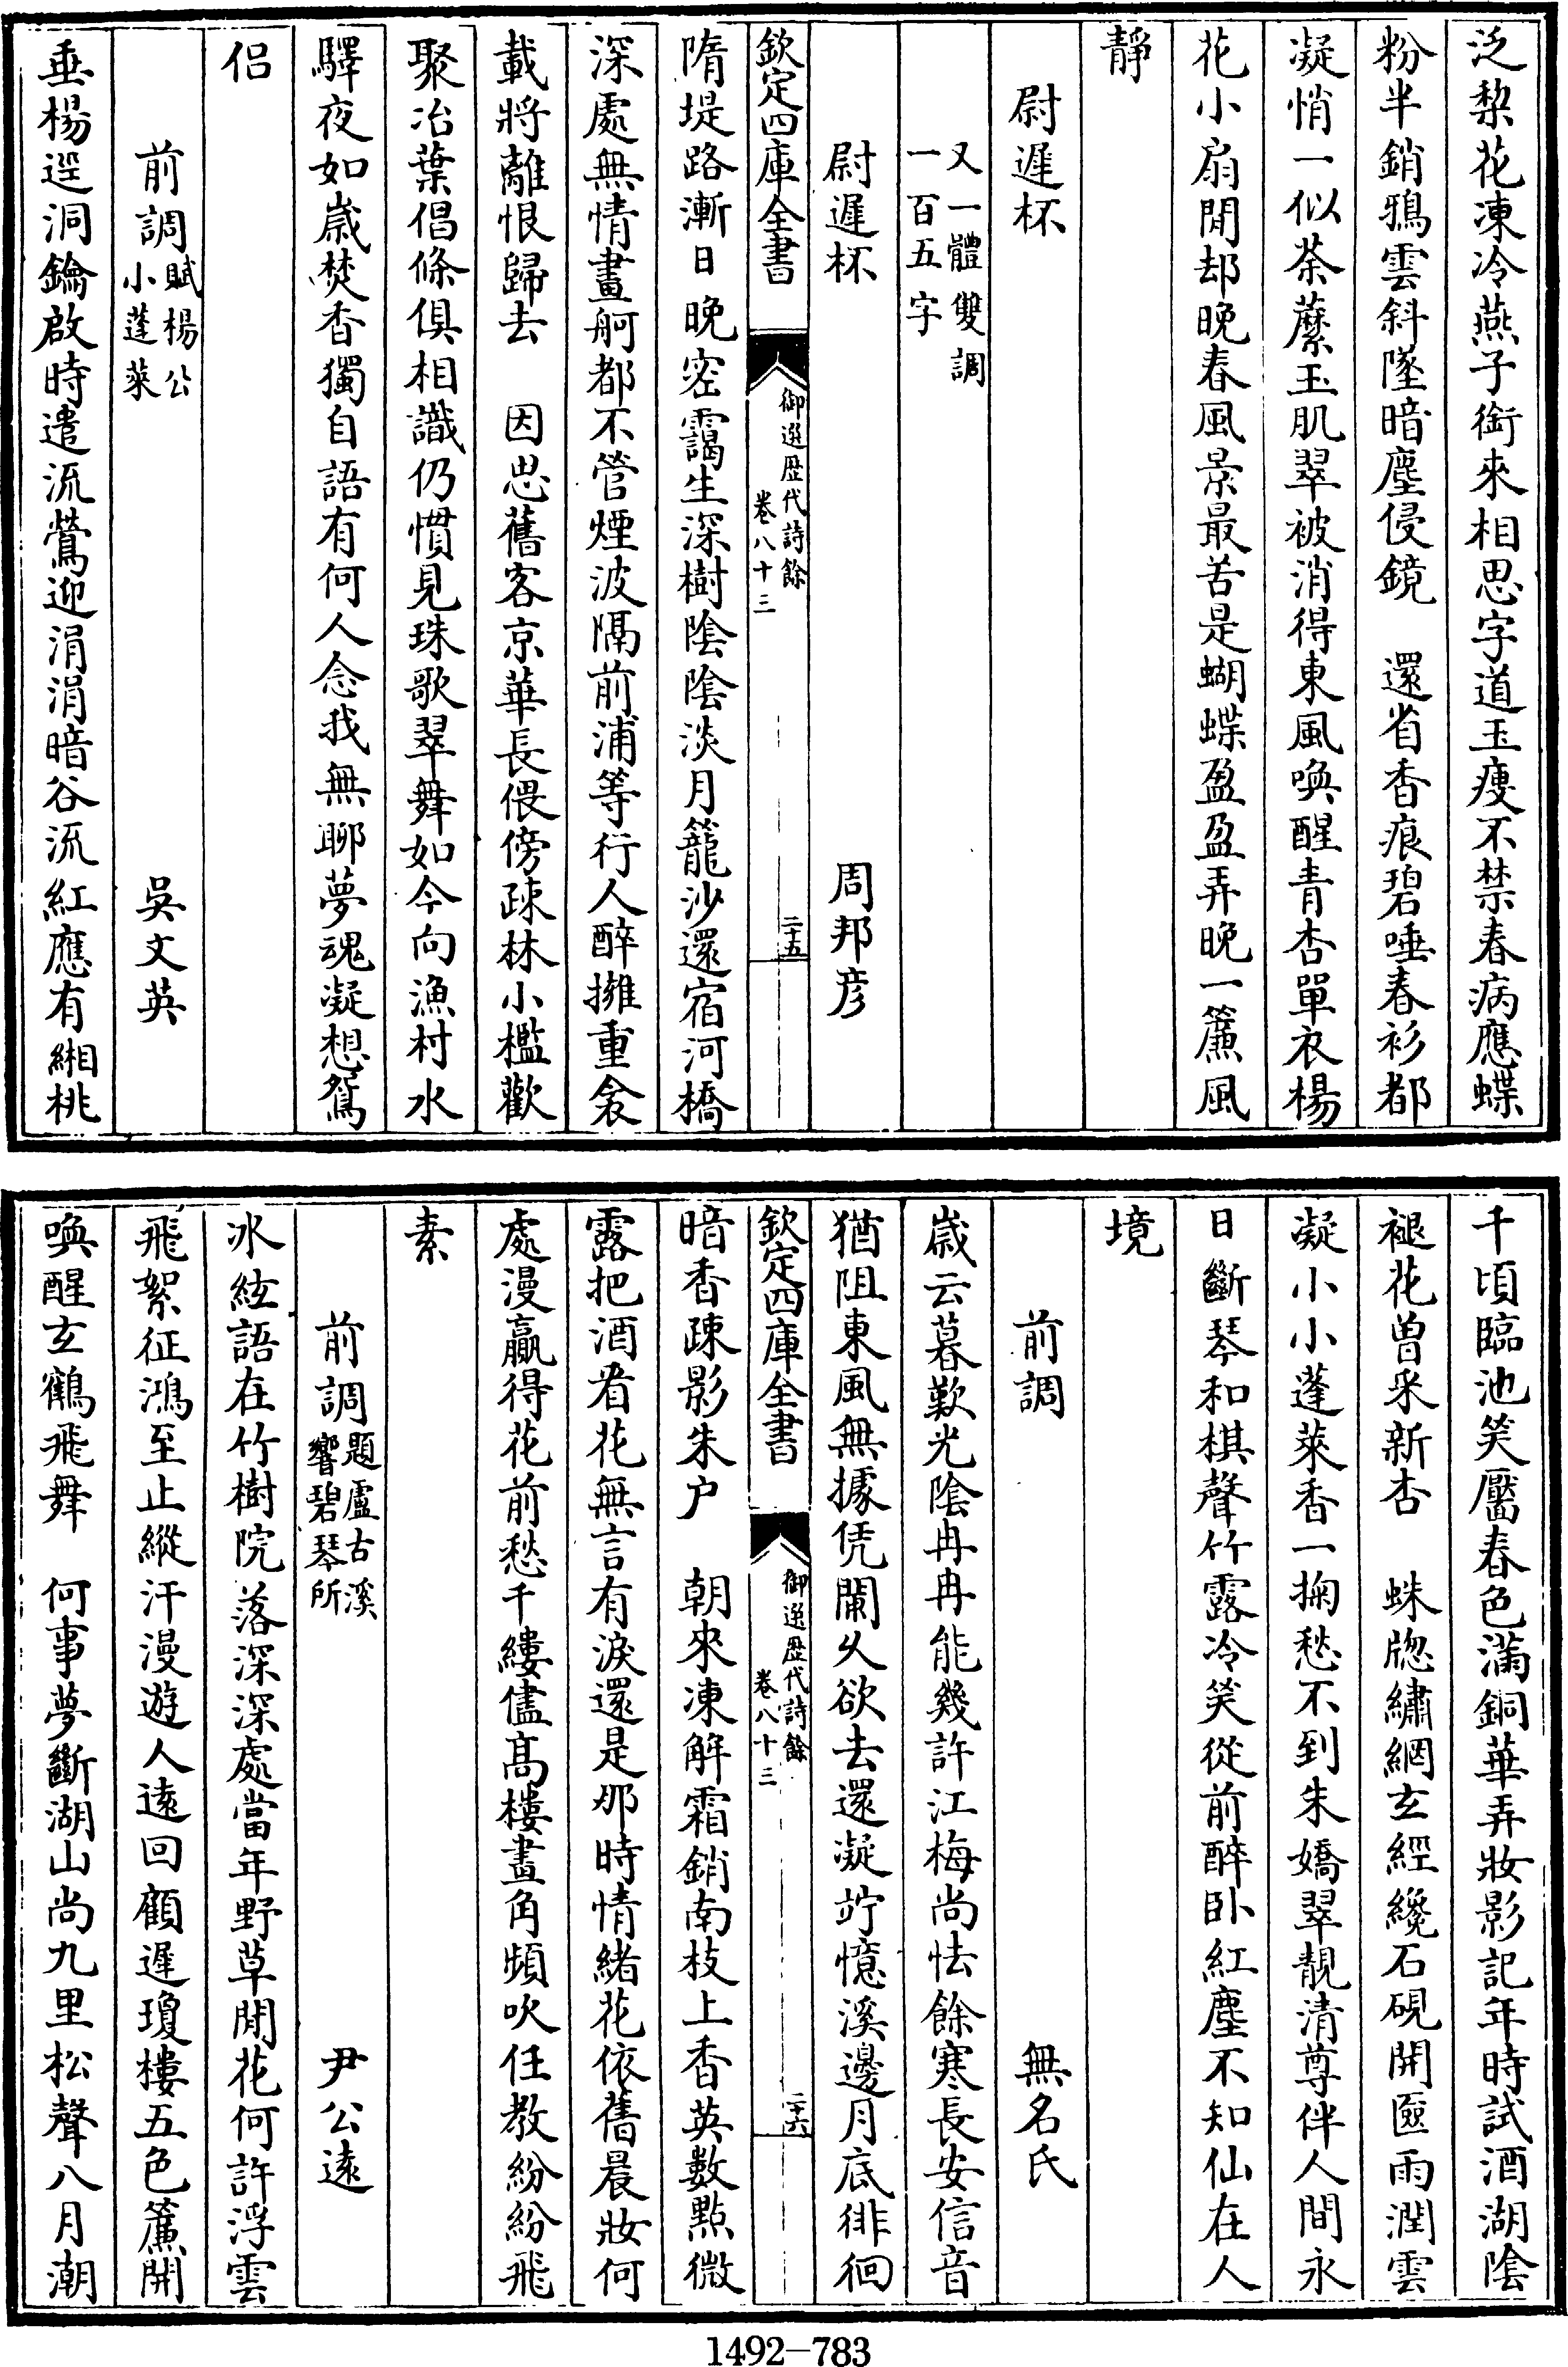 泛梨花凍冷燕子銜來相思字道玉瘦不禁春病應蝶
粉半銷鴉雲斜墜暗塵侵鏡　還省香痕碧唾春衫都
凝悄一似荼蘼玉肌翠被消得東風喚醒青杏單衣楊
花小扇閒却晚春風景最苦是蝴蝶盈盈弄晚一簾風
靜
尉遲杯
又一體雙調
一百五字
尉遲杯　周邦彦
欽定四庫全書
御選歴代詩餘
卷八十三
二十五
隋堤路漸日晚密靄生深樹陰陰淡月籠沙還宿河橋
深處無情畫舸都不管煙波隔前浦等行人醉擁重衾
載將離恨歸去　因思舊客京華長偎傍疎林小檻歡
聚冶葉倡條俱相識仍慣見珠歌翠舞如今向漁村水
驛夜如歲焚香獨自語有何人念我無聊夢魂凝想鴛
侣
前調賦楊公
小蓬萊　吳文英
垂楊逕洞鑰啟時遣流鶯迎涓涓暗谷流紅應有緗桃
千頃臨池笑靨春色滿銅華弄妝影記年時試酒湖陰
褪花曾采新杏　蛛牕繡網玄經纔石硯開匳雨潤雲
凝小小蓬萊香一掬愁不到朱嬌翠靚清尊伴人間永
日斷琴和棋聲竹露冷笑從前醉卧紅塵不知仙在人
境
前調　無名氏
歲云暮歎光陰冉冉能幾許江梅尚怯餘寒長安信音
猶阻東風無據凭闌久欲去還凝竚憶溪邊月底徘徊
欽定四庫全書
御選歴代詩餘
卷八十三
二十六
暗香疎影朱户　朝來凍解霜銷南枝上香英數點微
露把酒看花無言有淚還是那時情緒花依舊晨妝何
處漫贏得花前愁千縷儘髙樓畫角頻吹任教紛紛飛
素
前調題盧古溪
響碧琴所　尹公遠
冰絃語在竹樹院落深深處當年野草閒花何許浮雲
飛絮征鴻至止縱汗漫遊人逺回顧遲瓊樓五色簾開
喚醒玄鶴飛舞　何事夢斷湖山尚九里松聲八月潮
1492—783